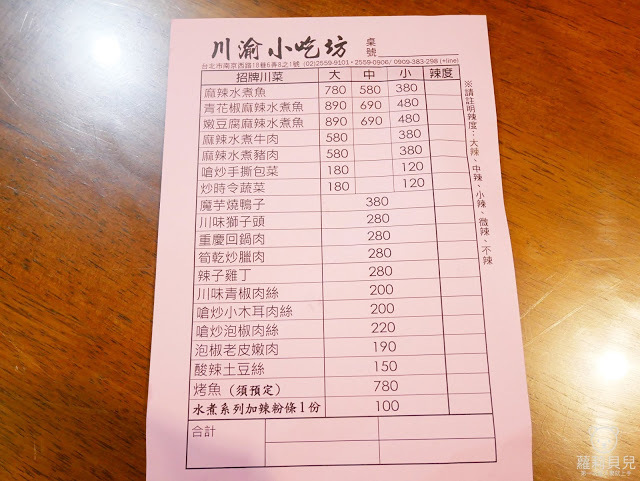 川渝小吃坊 桌號
台北市南京西路18巷6弄8之1號 (02)2559-9101・2559-0906/ 0909-383-298 (+line)
招牌川菜 大 中 小 辣度
麻辣水煮魚 780 580 380
青花椒麻辣水煮魚 890 690 480
嫩豆腐麻辣水煮魚 890 690 480
麻辣水煮牛肉 580 380
麻辣水煮豬肉 580 380
嗆炒手撕包菜 180 120
炒時令蔬菜 180 120
魔芋燒鴨子 380
川味獅子頭 280
重慶回鍋肉 280
筍乾炒臘肉 280
辣子雞丁 280
川味青椒肉絲 200
嗆炒小木耳肉絲 200
嗆炒泡椒肉絲 220
泡椒老皮嫩肉 190
酸辣土豆絲 150
烤魚 (須預定) 780
水煮系列加辣粉條1份 100
合計
※請註明辣度：大辣、中辣、小辣、微辣、不辣
蘿莉貝兒